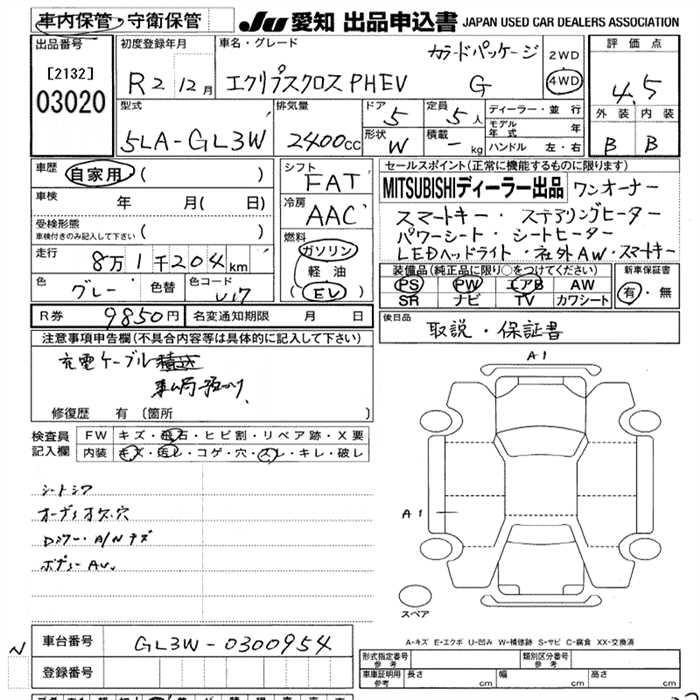 車内保管・守衛保管
JU 愛知 出品申込書 JAPAN USED CAR DEALERS ASSOCIATION
出品番号
[2132]
03020
初度登録年月
R2年12月
車名・グレード
エクリプスクロスPHEV カラードパッケージ G
2WD
4WD
評価点
4.5
外装 内装
B B
型式
5LA-GL3W
排気量
2400cc
ドア
5
形状
W
定員
5人
積載
- kg
ディーラー・並行
モデル年式 年
ハンドル 左・右
車歴
自家用 ( )
車検 年 月( 日)
受検形態
車検付きのみ記入して下さい ( )
走行 8万1千204km
色 グレー
色替
色コード U17
シフト
FAT
冷房
AAC
燃料
ガソリン
軽油
(EV)
セールスポイント(正常に機能するものに限ります)
MITSUBISHIディーラー出品 ワンオーナー
スマートキー・ステアリングヒーター
パワーシート・シートヒーター
LEDヘッドライト・社外AW・スマートキー
装備品(純正品に限り○をつけてください)
PS PW エアB AW
SR ナビ TV カワシート
新車保証書
有・無
R券 9850円
名変通知期限 月 日
後日品
取説・保証書
注意事項申告欄(不具合内容等は具体的に記入して下さい)
充電ケーブル
修復歴 有 [箇所 ]
検査員記入欄
FW キズ・飛石・ヒビ割・リペア跡・X要
内装 キズ・汚レ・コゲ・穴・スレ・キレ・破レ
シートシワ
オーディオ欠穴
Dドアー・A/Nキズ
A1
A1
スペア
A-キズ E-エクボ U-凹み W-補修跡 S-サビ C-腐食 XX-交換済
N
車台番号 GL3W-0300954
登録番号
形式指定番号 参考
類別区分番号 参考
車庫証明用 参考 長さ cm 幅 cm 高さ cm